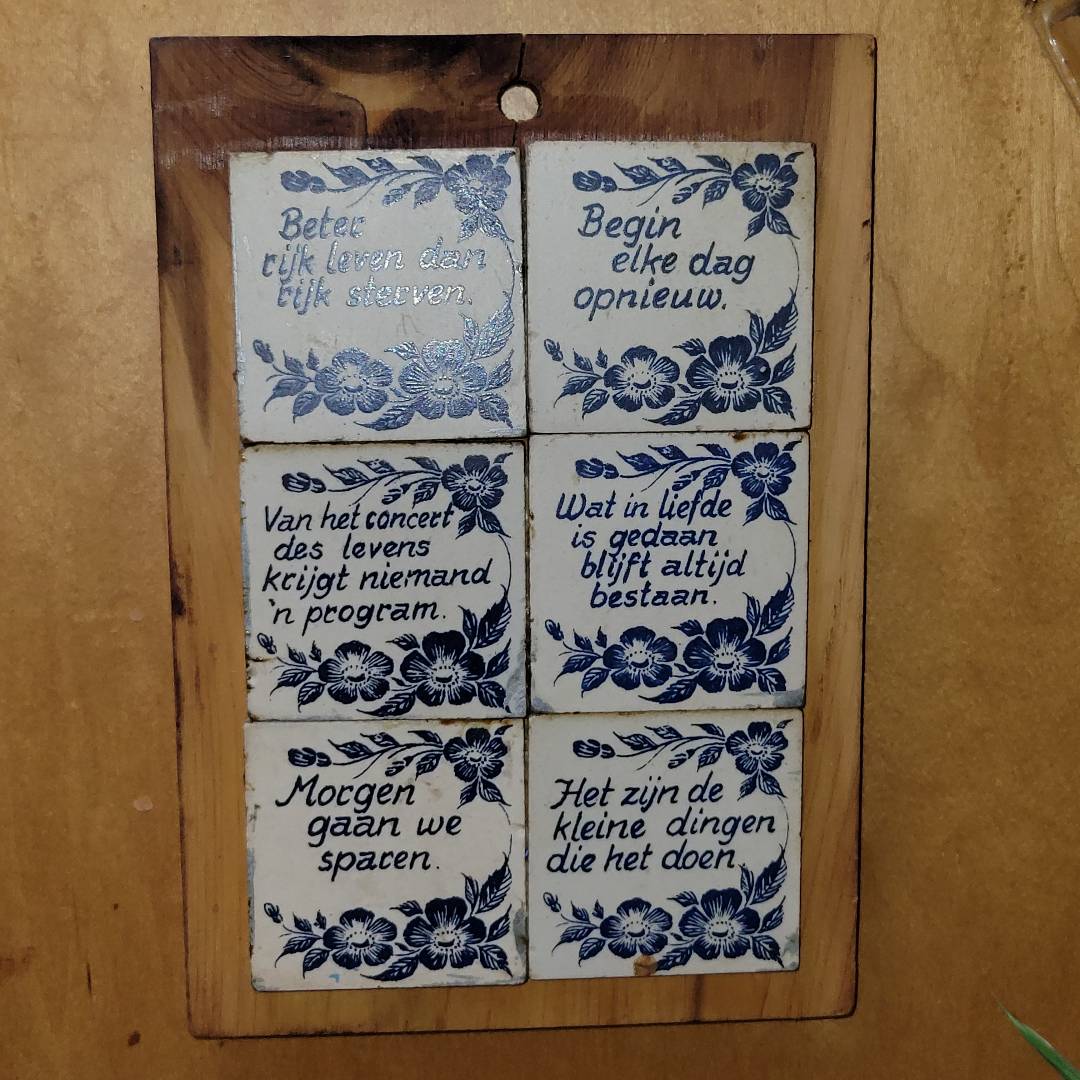 Beter
rijk leven dan
rijk sterven.
Begin
elke dag
opnieuw.
Van het concert
des levens
krijgt niemand
'n program.
Wat in liefde
is gedaan
blijft altijd
bestaan.
Morgen
gaan we
sparen.
Het zijn de
kleine dingen
die het doen.